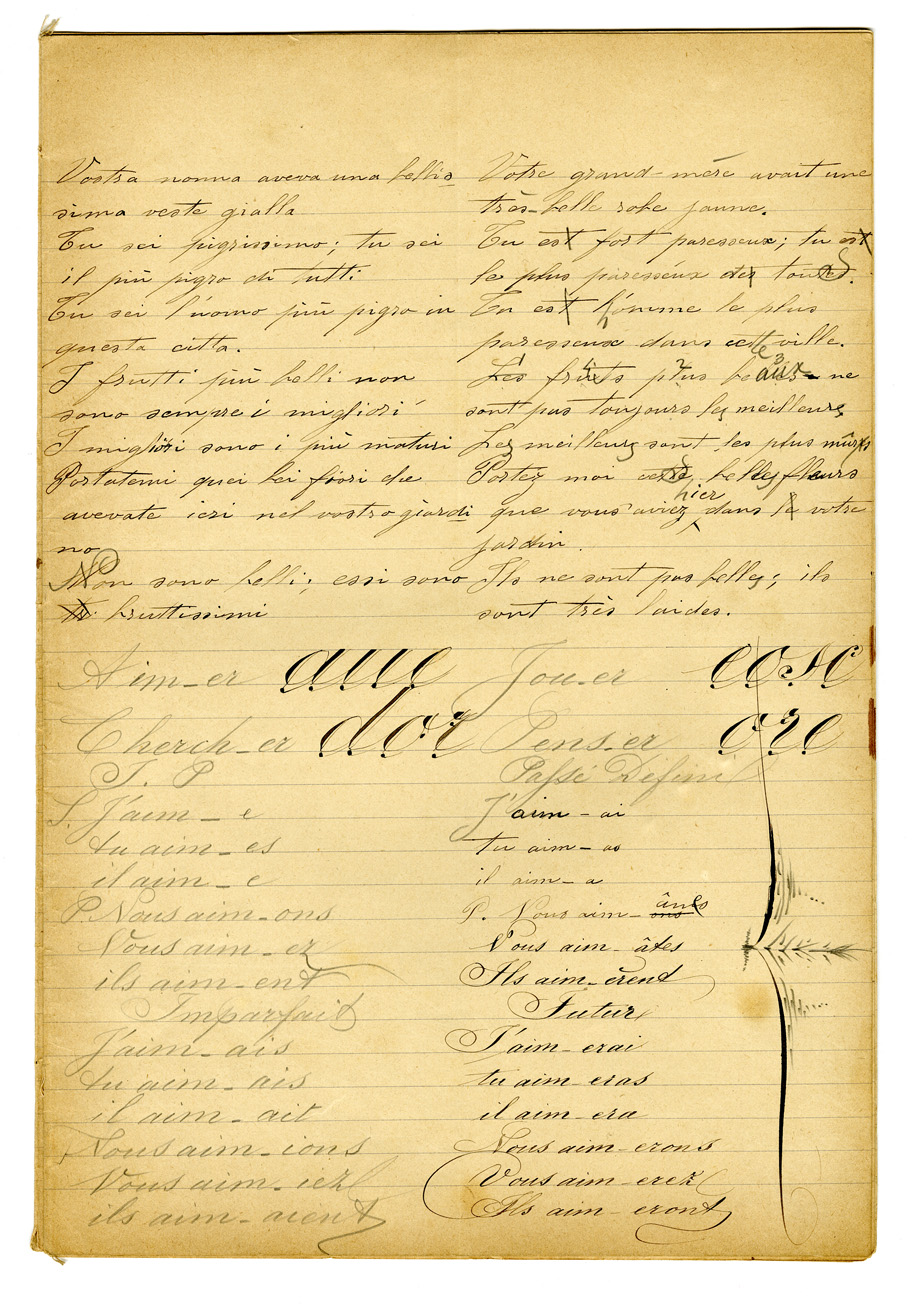 Vostra nonna aveva una bellis
sima veste gialla
Tu sei pigrissimo; tu sei
il più pigro di tutti
Tu sei l'uomo più pigro in
questa citta.
I frutti più belli non
sono sempre i migliori
I migliori sono i più maturi
Portatemi quei bei fiori che
avevate ieri nel vostro giardi
no
Non sono belli; essi sono
bruttissimi
Votre grand-mère avait une
très-belle robe jaune.
Tu est fort paresseux; tu est
le plus paresseux des tous.
Tu est homme le plus
paresseux dans cette ville.
Les fruits plus beaux ne
sont pas toujours les meilleurs
Les meilleurs sont les plus mûrs
Portez moi belles fleurs
hier
que vous aviez dans le votre
jardin.
Ils ne sont pas belles; ils
sont très laides.
Aim-er aue Jou-er cosc
Cherch-er dor Pens-er ore
I. P
S. J'aim - e
tu aim - es
il aim - e
P. Nous aim - ons
Vous aim - ez
ils aim - ent
Imparfait
J'aim - ais
tu aim - ais
il aim - ait
Nous aim - ions
Vous aim - iez
ils aim - aient
Passé Défini
J'aim - ai
tu aim - as
il aim - a
P. Nous aim - ons âmes
Vous aim - âtes
Ils aim - èrent
Futur
J'aim - erai
tu aim - eras
il aim - era
Nous aim - erons
Vous aim - erez
Ils aim - eront